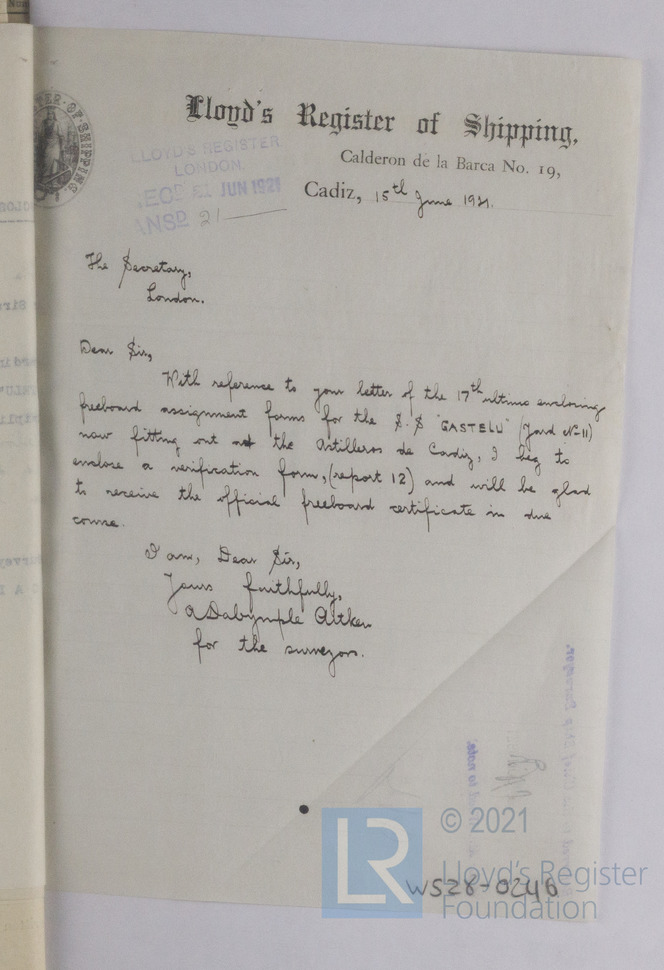 Lloyd's Register of Shipping,
Calderon de la Barca No. 19,
Cadiz, 15th June 1921.
LLOYD'S REGISTER
LONDON.
REC'D 21 JUN 1921
ANSD 21
The Secretary,
London.
Dear Sir,
With reference to your letter of the 17th ultimo enclosing
freeboard assignment forms for the S.S "GASTELU" (Yard No 11)
now fitting out at the Astilleros de Cadiz, I beg to
enclose a verification form, (report 12) and will be glad
to receive the official freeboard certificate in due
course.
I am, Dear Sir,
Yours faithfully,
A Dalrymple Aitken
for the surveyors.
© 2021
LR
Lloyd's Register
Foundation
W528-0246